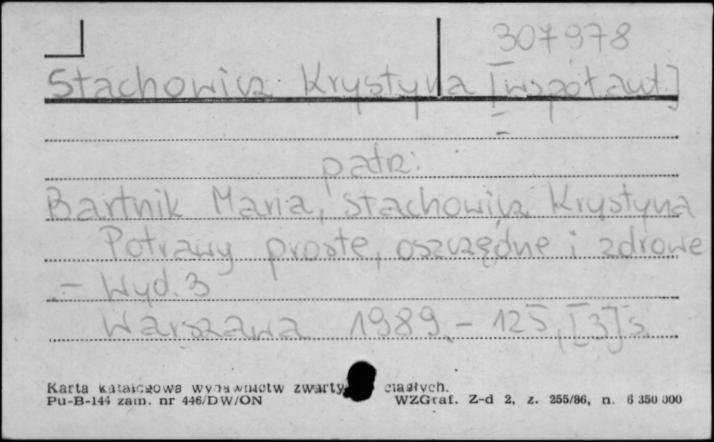 307978
Stachowicz Krystyna [współaut.]
patrz:
Bartnik Maria, Stachowicz Krystyna
Potrawy proste, oszczędne i zdrowe
.- Wyd. 3
Warszawa 1989.- 125, [3] s.
Karta katalogowa wydawnictw zwartych ciągłych.
Pu-B-144 zam. nr 446/DW/ON WZGraf. Z-d 2, z. 255/86, n. 6 350 000